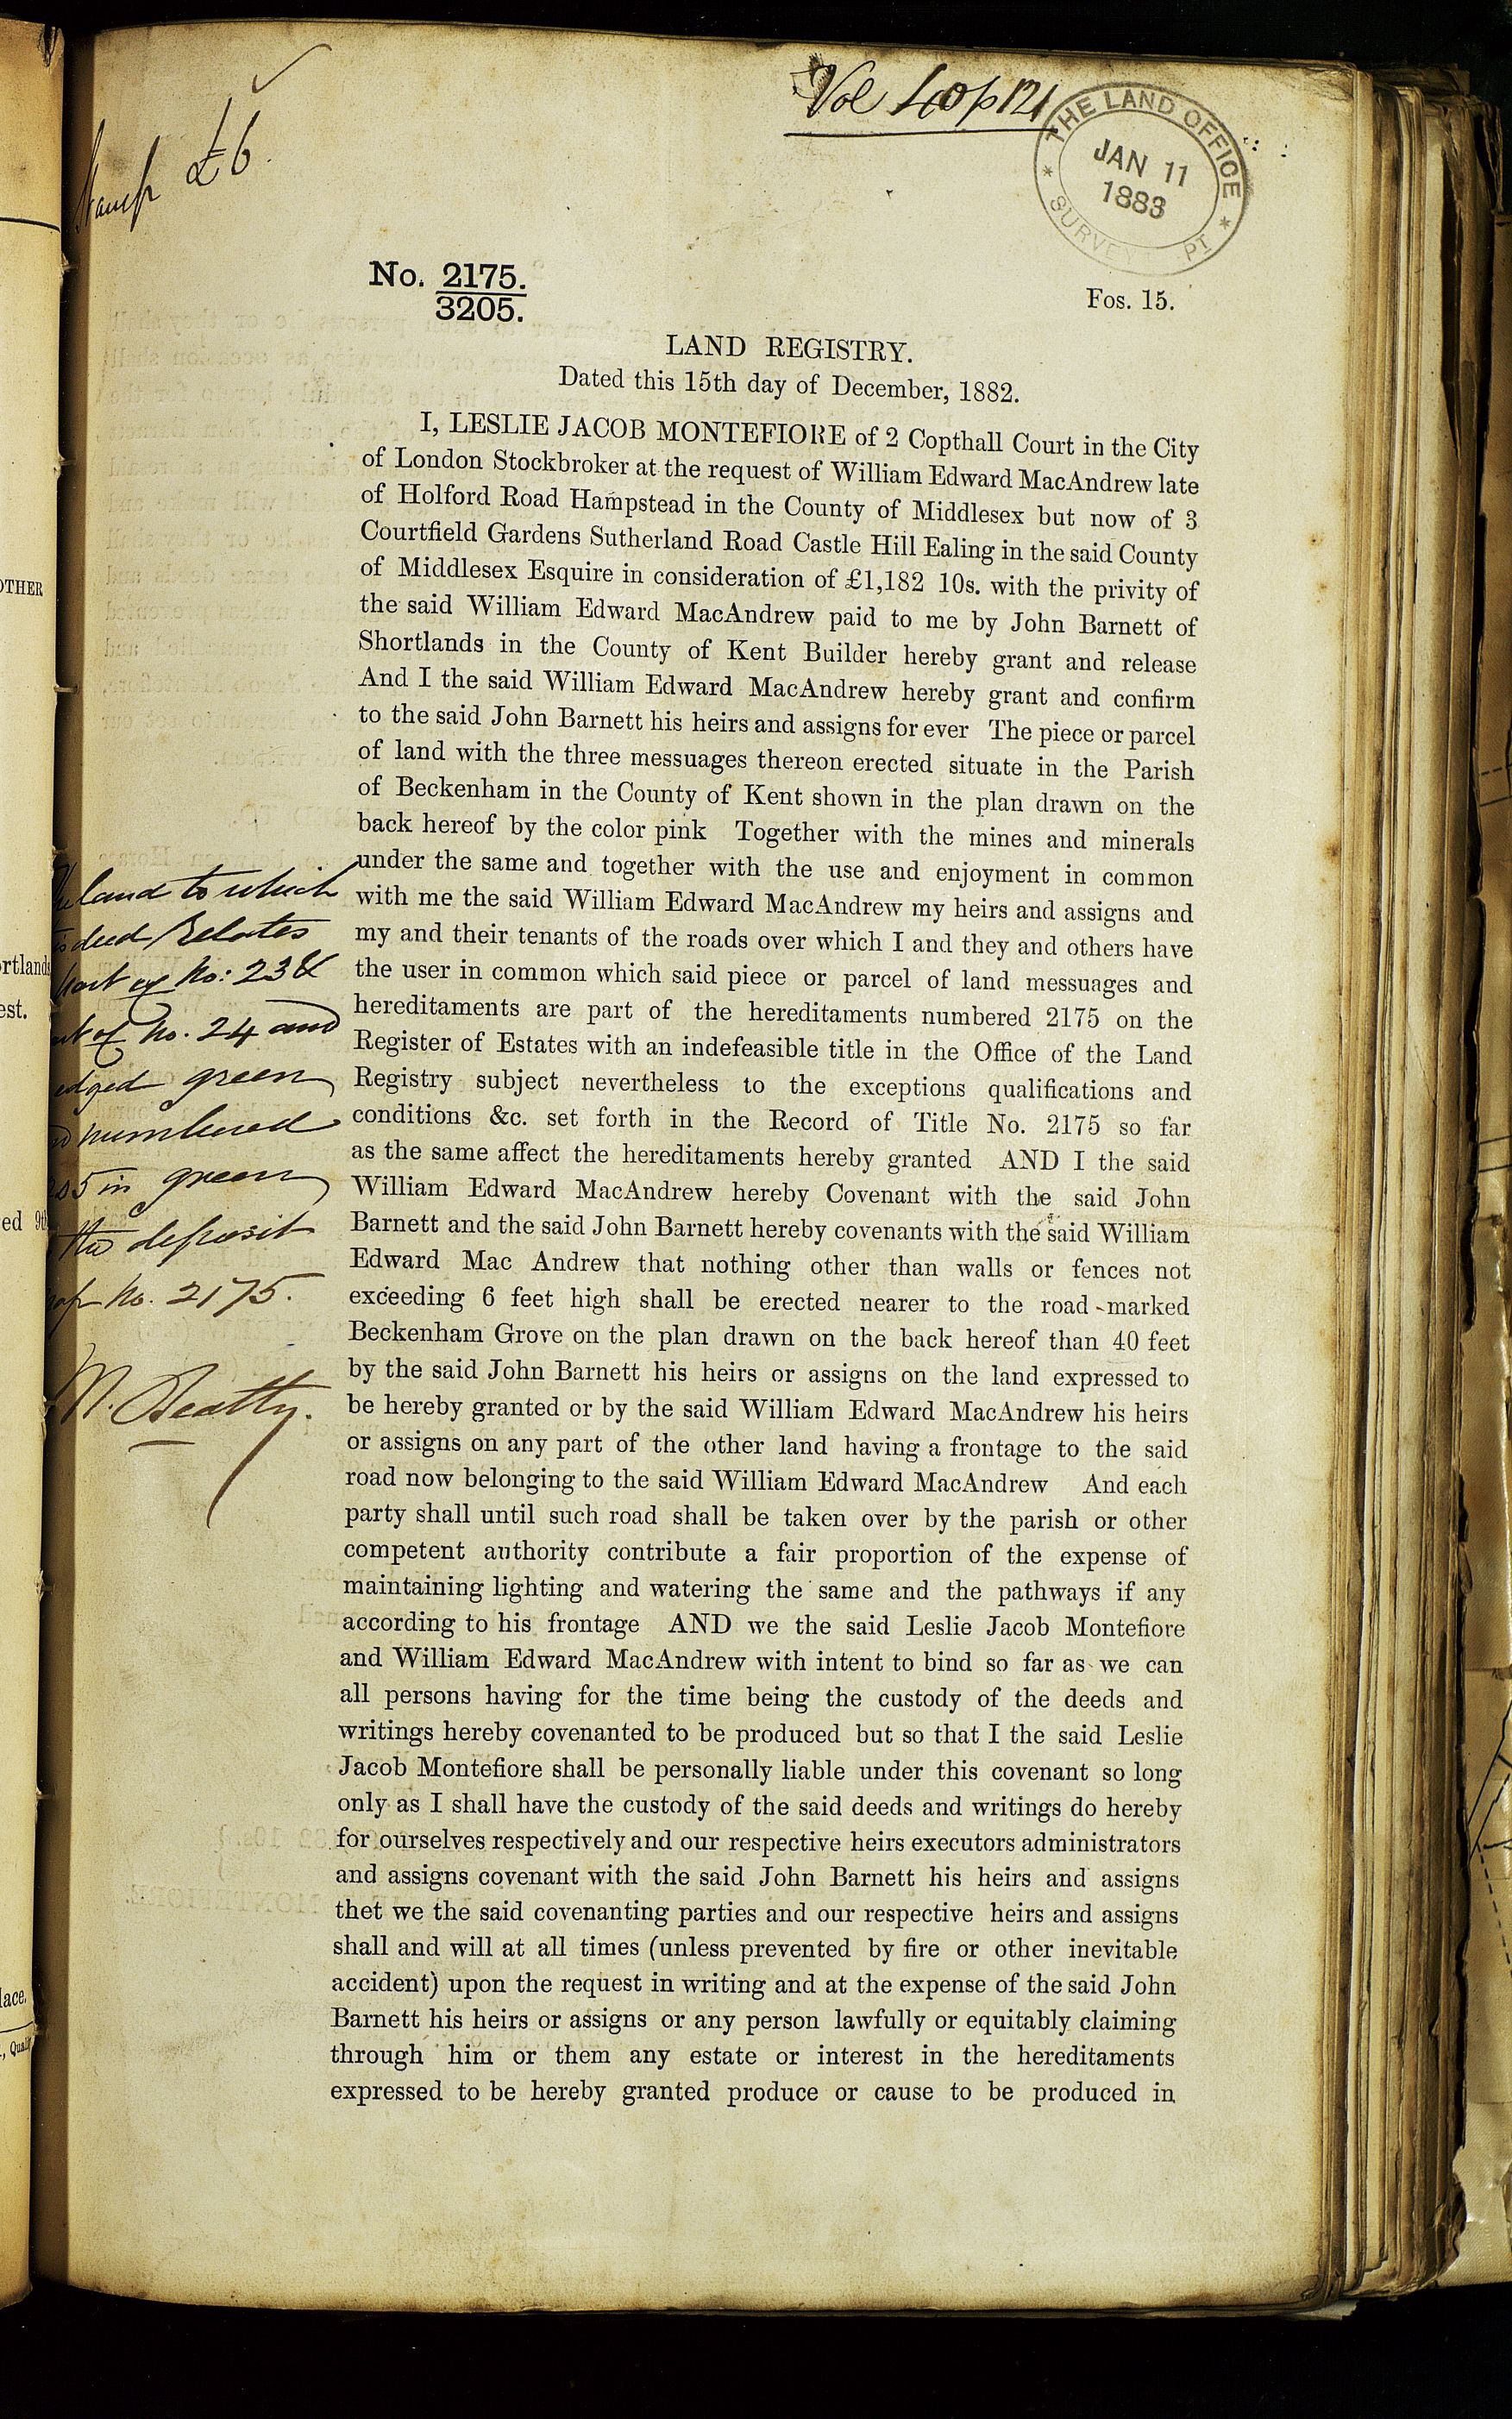 Vol
p 121
THE LAND OFFICE
JAN 11
1883
SURVEY
PT
Stamp £6.
No. 2175.
3205.
Fos. 15.
LAND REGISTRY.
Dated this 15th day of December, 1882.
I, LESLIE JACOB MONTEFIORE of 2 Copthall Court in the City
of London Stockbroker at the request of William Edward MacAndrew late
of Holford Road Hampstead in the County of Middlesex but now of 3
Courtfield Gardens Sutherland Road Castle Hill Ealing in the said County
of Middlesex Esquire in consideration of £1,182 10s. with the privity of
the said William Edward MacAndrew paid to me by John Barnett of
Shortlands in the County of Kent Builder hereby grant and release
And I the said William Edward MacAndrew hereby grant and confirm
to the said John Barnett his heirs and assigns for ever The piece or parcel
of land with the three messuages thereon erected situate in the Parish
of Beckenham in the County of Kent shown in the plan drawn on the
back hereof by the color pink Together with the mines and minerals
under the same and together with the use and enjoyment in common
with me the said William Edward MacAndrew my heirs and assigns and
my and their tenants of the roads over which I and they and others have
the user in common which said piece or parcel of land messuages and
hereditaments are part of the hereditaments numbered 2175 on the
Register of Estates with an indefeasible title in the Office of the Land
Registry subject nevertheless to the exceptions qualifications and
conditions &c. set forth in the Record of Title No. 2175 so far
as the same affect the hereditaments hereby granted AND I the said
William Edward MacAndrew hereby Covenant with the said John
Barnett and the said John Barnett hereby covenants with the said William
Edward Mac Andrew that nothing other than walls or fences not
exceeding 6 feet high shall be erected nearer to the road marked
Beckenham Grove on the plan drawn on the back hereof than 40 feet
by the said John Barnett his heirs or assigns on the land expressed to
be hereby granted or by the said William Edward MacAndrew his heirs
or assigns on any part of the other land having a frontage to the said
road now belonging to the said William Edward MacAndrew And each
party shall until such road shall be taken over by the parish or other
competent authority contribute a fair proportion of the expense of
maintaining lighting and watering the same and the pathways if any
according to his frontage AND we the said Leslie Jacob Montefiore
and William Edward MacAndrew with intent to bind so far as we can
all persons having for the time being the custody of the deeds and
writings hereby covenanted to be produced but so that I the said Leslie
Jacob Montefiore shall be personally liable under this covenant so long
only as I shall have the custody of the said deeds and writings do hereby
for ourselves respectively and our respective heirs executors administrators
and assigns covenant with the said John Barnett his heirs and assigns
thet we the said covenanting parties and our respective heirs and assigns
shall and will at all times (unless prevented by fire or other inevitable
accident) upon the request in writing and at the expense of the said John
Barnett his heirs or assigns or any person lawfully or equitably claiming
through him or them any estate or interest in the hereditaments
expressed to be hereby granted produce or cause to be produced in
land to which
deed relates
part of No: 23 &
of No. 24 and
edged green
numbered
05 in green
the deposit
No. 2175.
Beatty.
OTHER
rtlands
est.
ed 9th
lace.